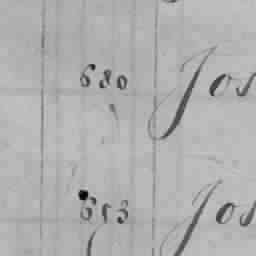 680 Jos
653 Jos